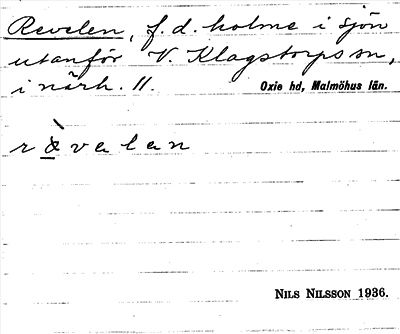 Revelen, f. d. holme i sjön
utanför V. Klagstorps sn,
i närh. ll.
Oxie hd, Malmöhus län.
r æ̀ v a l a n
NILS NILSSON 1936.